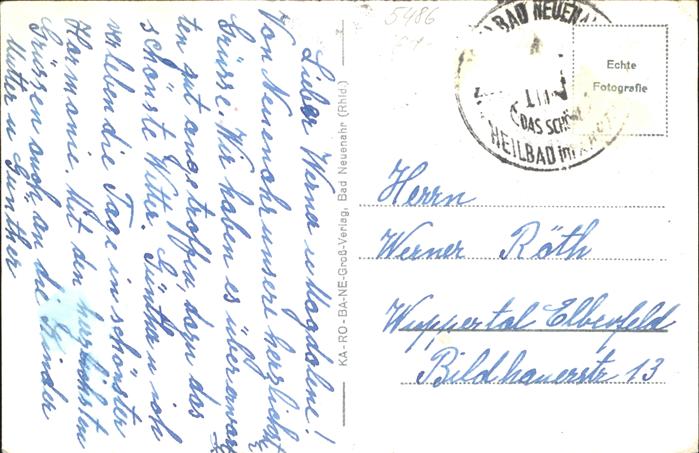 Lieber Werner u Magdalene!
Von Neuenahr unsere herzlichst
Grüsse. Wir haben es überaus
gut angetroffen, dazu das
schönste Wetter. Günther u ich
verleben die Tage in schönster
Harmonie. Mit den herzlichsten
Grüssen auch an die Kinder
Mutter u Günther
KA-RO-BA-NE-Groß-Verlag, Bad Neuenahr (Rhld.)
5486
BAD NEUENA
DAS SCHÖ
HEILBAD im
Echte
Fotografie
Herrn
Werner Röth
Wuppertal Elberfeld
Bildhauerstr 13